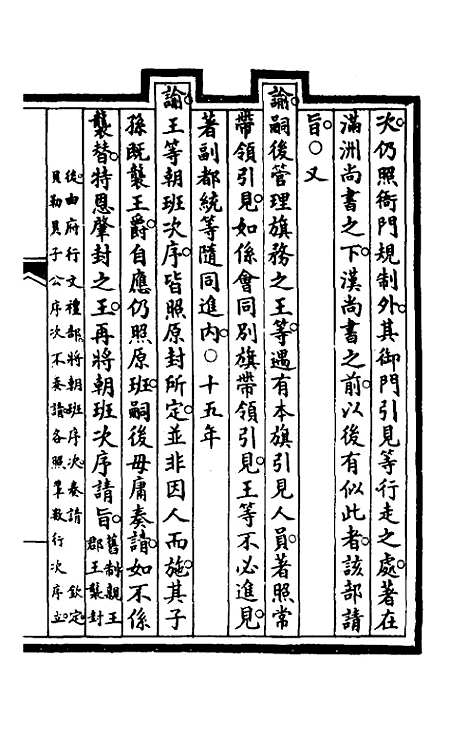 次仍照衙門規制外其御門引見等行走之處著在
滿洲尚書之下漢尚書之前以後有似此者該部請
旨○又
諭嗣後管理旗務之王等遇有本旗引見人員著照常
帶領引見如係會同別旗帶領引見王等不必進見
著副都統等隨同進內○十五年
諭王等朝班次序皆照原封所定並非因人而施其子
孫既襲王爵自應仍照原班嗣後毋庸奏請如不係
襲替特恩肇封之王再將朝班次序請旨舊制親王
郡王襲封
後由府行文禮部將朝班序次奏請　欽定
貝勒貝子公序次不奏請各照單數行次序立